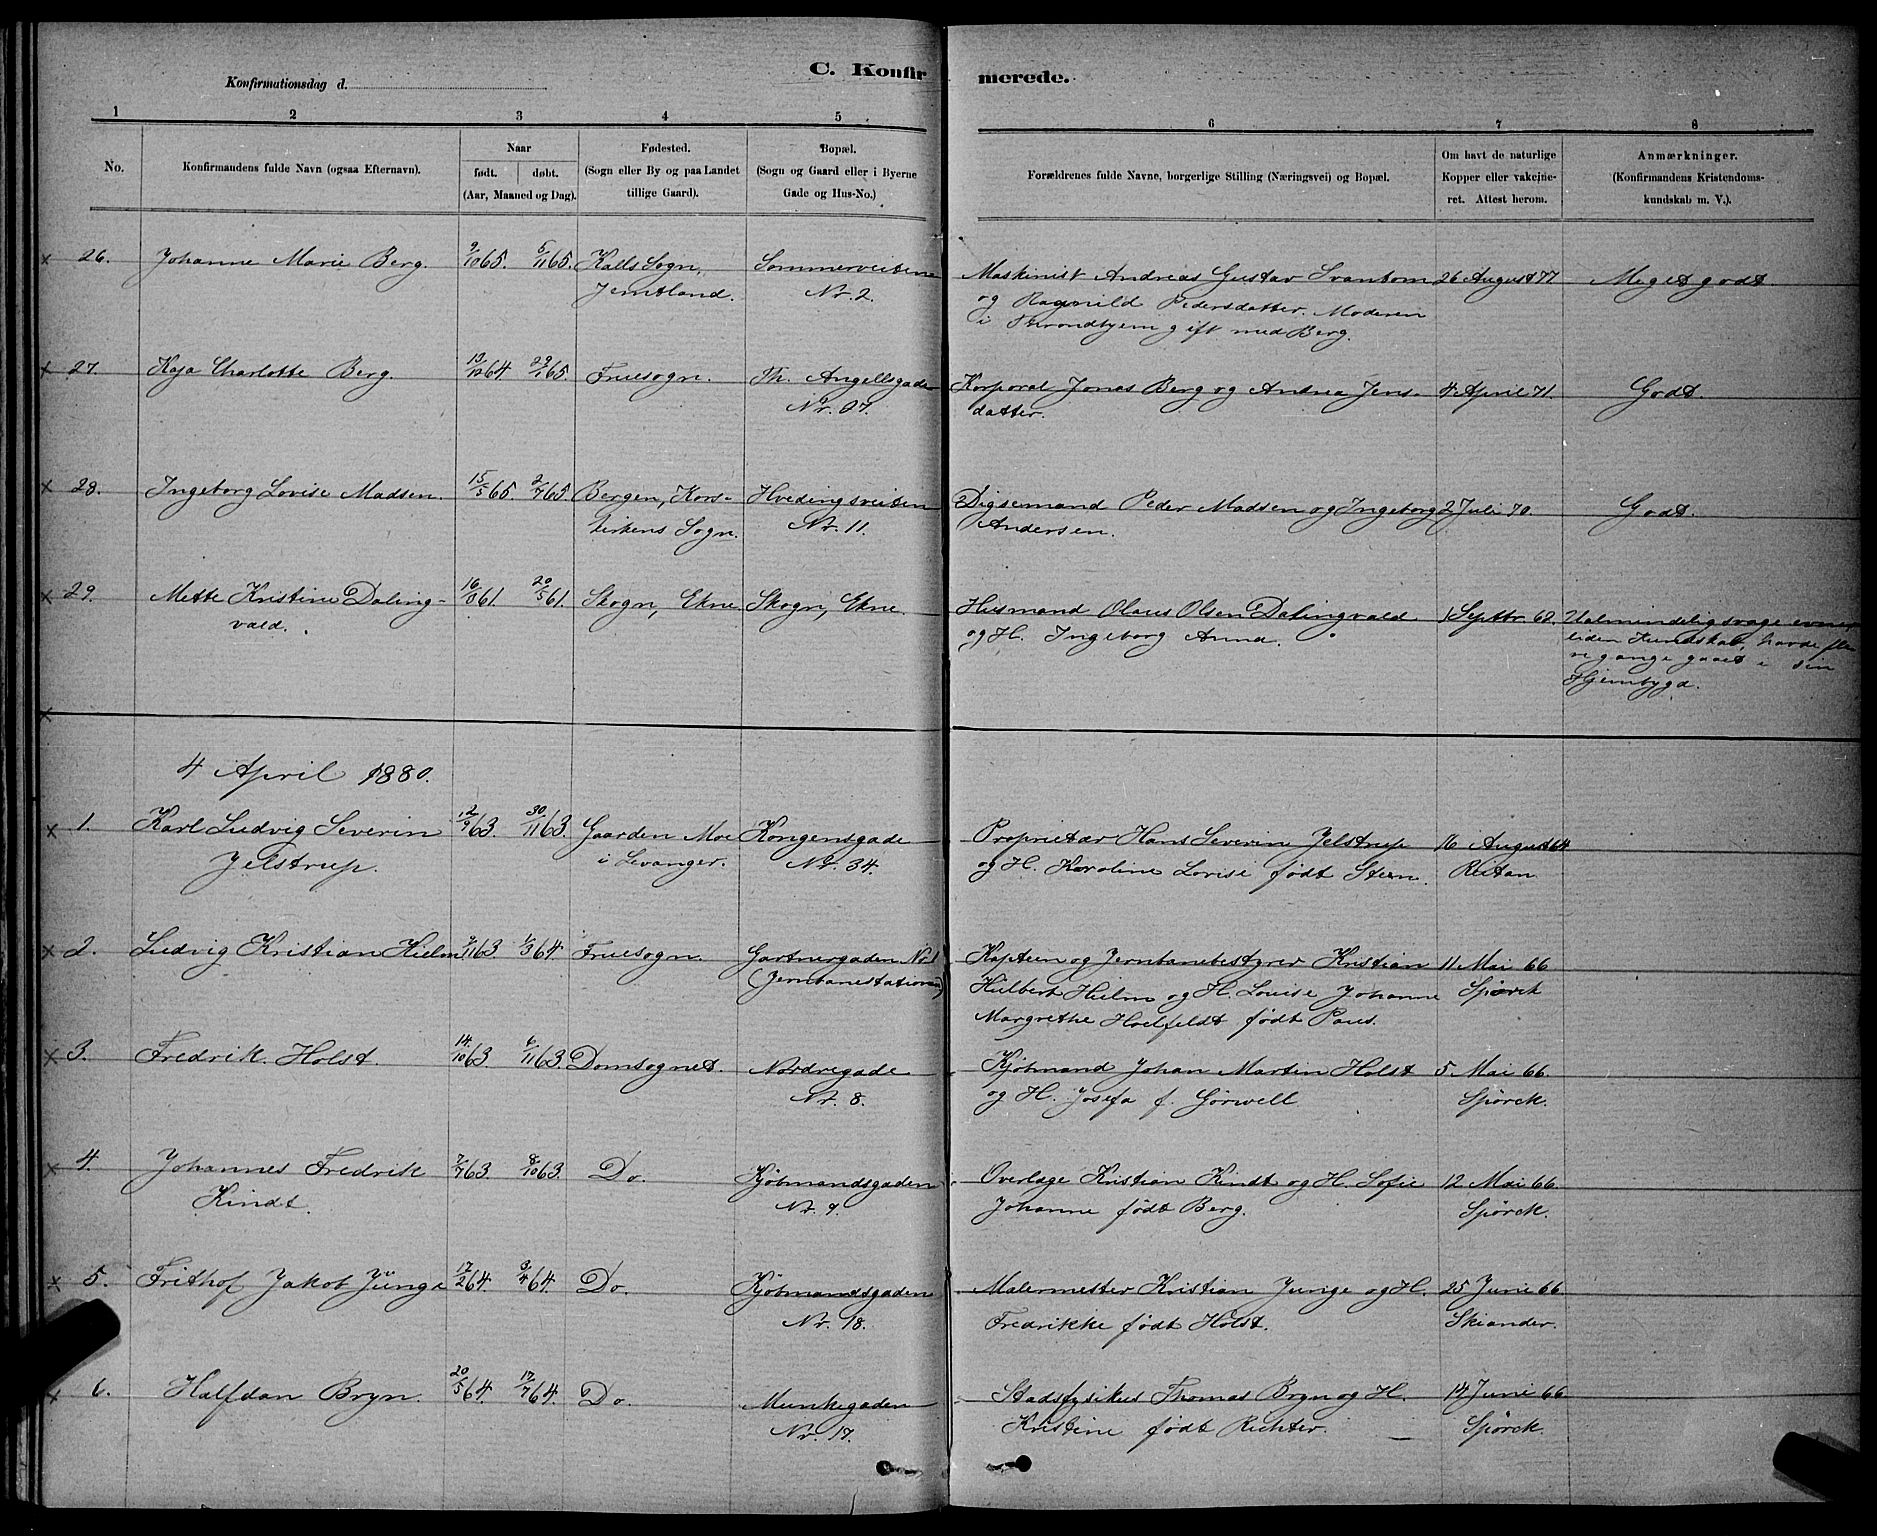 C. Konfirmerede.
Konfirmationsdag d.
1 2 3 4 5 6 7 8
No. Konfirmandens fulde Navn (ogsaa Efternavn). Naar født. døbt. (Aar, Maaned og Dag). Fødested. (Sogn eller By og paa Landet tillige Gaard). Bopæl. (Sogn og Gaard eller i Byerne Gade og Hus-No.) Forældrenes fulde Navne, borgerlige Stilling (Næringsvei) og Bopæl. Om havt de naturlige Kopper eller vakcineret. Attest herom. Anmærkninger. (Konfirmandens Kristendomskundskab m. V.).
26. Johanne Marie Berg. 9/10 65. 5/11 65. Kalls Sogn, Sommerveiten Maskinist Andreas Gustav Svanbom 26 August 77 Meget godt
Jemtland. Nr. 2. og Ragnild Pedersdatter. Moderen
i Throndhjem gift med Berg.
27. Kaja Charlotte Berg. 13/12 64 29/1 65. Fruesogn. Th. Angellsgade Korporal Jonas Berg og Andrea Jens- 4 April 71. Godt.
Nr. datter.
28. Ingeborg Lovise Madsen. 15/5 65 2/7 65 Bergen, Kors- Hvedingsveiten Digsemand Peder Madsen og Ingeborg 2 Juli 70. Godt.
kirkens Sogn. Nr. 11. Andersen.
29. Mette Kristine Daling- 61. 20/5 61. Skogn, Ekne Skogn, Ekne Husmand Olaus Olsen Dalingvald 1 Septbr. 62. Ualmindelig svage evner,
vald. og H. Ingeborg Anna. liden Kundskab, havde fle-
re gange gaaet i sin
Hjembygd.
4 April 1880.
1. Karl Ludvig Severin 12/9 63. 30/11 63. Gaarden Moe Kongensgade Proprietær Hans Severin Jelstrup 16 August 64
Jelstrup. i Levanger. Nr. 34. og H. Karoline Lovise født Steen. Ristan
2. Ludvig Kristian Hielm 63 1/3 64. Fruesogn. Gartnergaden Nr. 1 Kaptein og Jernbanebestyrer Kristian 11 Mai 66.
(Jernbanestationen) Hulbert Hielm og H. Louise Johanne Spørck
Margrethe Hoelfeldt født Paus.
3. Fredrik Holst. 14/10 63 6/11 63. Domsognet. Nordregade Kjøbmand Johan Martin Holst 5 Mai 66.
Nr. 8. og H. Josefa f. Gørwell Spørck.
4. Johannes Fredrik 7/7 63. 8/10 63. Do. Kjøbmandsgaden Overlæge Kristian Kindt og H. Sofie 12 Mai 66.
Kindt. Nr. 9. Johanne født Berg. Spørck.
5. Frithof Jakob Jünge 17/2 64. 3/4 64. Do. Kjøbmandsgaden Malermester Kristian Junge og H. 25 Juni 66
Nr. 18. Fredrikke født Holst. Skiander.
6. Halfdan Bryn. 20/5 64. 17/7 64. Do. Munkegaden Stadsfysikus Thomas Bryn og H. 14 Juni 66
Nr. 17. Kristine født Richter. Spørck.